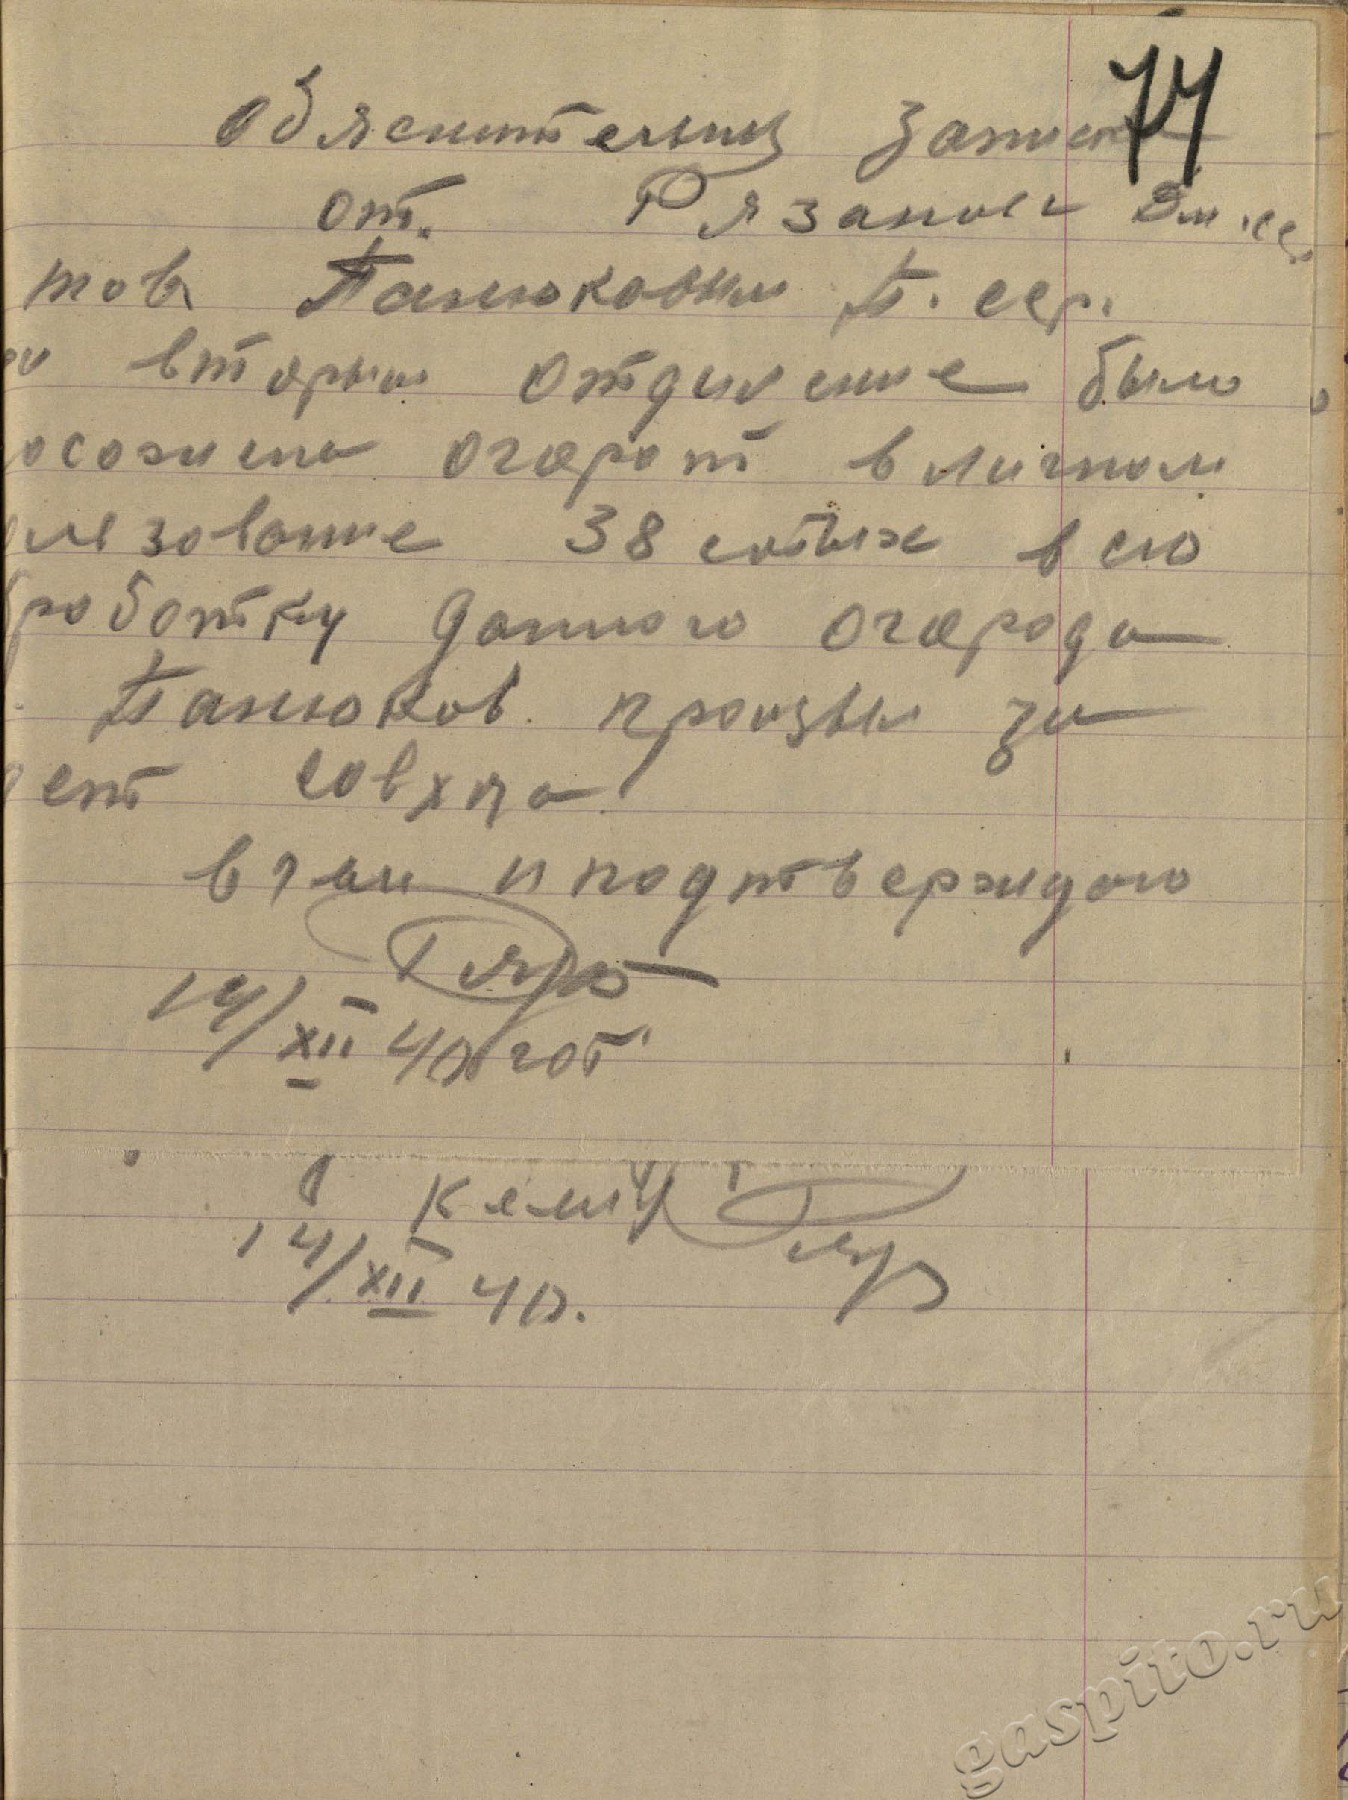 74
Обяснительны записка
от. Рязанов Дм. се.
тов Панюковим П. сер.
вторым отдиление было
осожена огарот в личном
ользование 38 сотых всю
работку данного огарода
Панюков. произвы за
сет совхоза
в чем и подтверждаю
14/XII 40 год
К сему
14/XII 40.
gaspito.ru